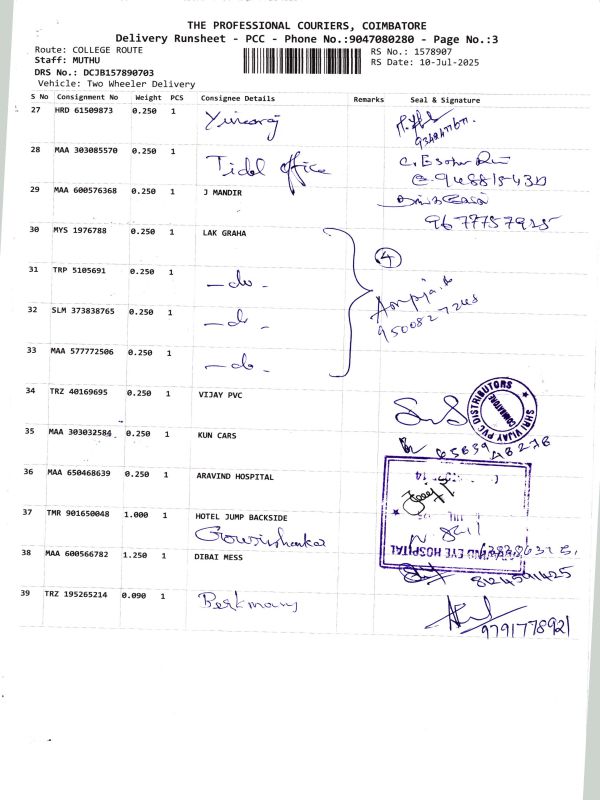 THE PROFESSIONAL COURIERS, COIMBATORE
Delivery Runsheet - PCC - Phone No.:9047080280 - Page No.:3
Route: COLLEGE ROUTE
RS No.: 1578907
Staff: MUTHU
RS Date: 10-Jul-2025
DRS No.: DCJB157890703
Vehicle: Two Wheeler Delivery
S No Consignment No Weight PCS Consignee Details Remarks Seal & Signature
27 HRD 61509873 0.250 1
28 MAA 303085570 0.250 1 Tidel office
29 MAA 600576368 0.250 1 J MANDIR
9677757925
30 MYS 1976788 0.250 1 LAK GRAHA
4
31 TRP 5105691 0.250 1 - do -
32 SLM 373838765 0.250 1 - do -
9500827248
33 MAA 577772506 0.250 1 - do -
34 TRZ 40169695 0.250 1 VIJAY PVC
SHRI VIJAY PVC DISTRIBUTORS
COIMBATORE
35 MAA 303032584 0.250 1 KUN CARS
36 MAA 650468639 0.250 1 ARAVIND HOSPITAL
37 TMR 901650048 1.000 1 HOTEL JUMP BACKSIDE
Gowrishankar
EYE HOSPITAL
38 MAA 600566782 1.250 1 DIBAI MESS
8124591425
39 TRZ 195265214 0.090 1 Berkmans
9791778921